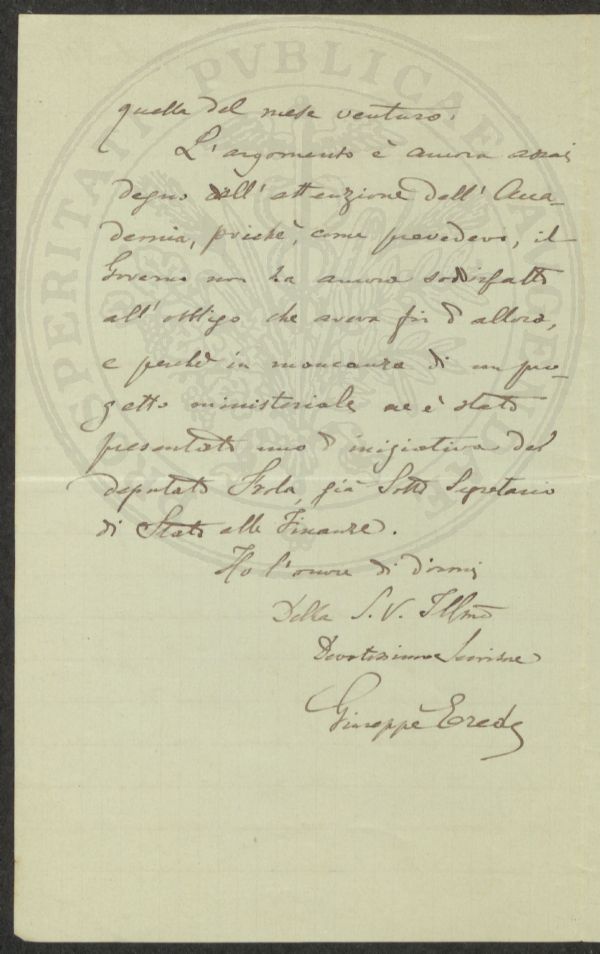 PROSPERITATI PVBLICAE AVGENDAE
quella del mese venturo.
L'argomento è ancora assai
degno dell'attenzione dell'Acca-
demia, poichè, come prevedevo, il
Governo non ha ancora soddisfatto
all'obbligo che aveva fin d'allora,
e perchè in mancanza di un pro-
getto ministeriale ne è stato
presentato uno d'iniziativa del
deputato Frola, già Sotto Segretario
di Stato alle Finanze.
Ho l'onore di dirmi
Della S. V. Illma
Devotissimo
Giuseppe Ereda